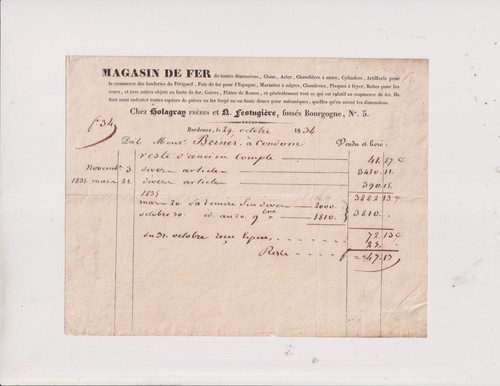 MAGASIN DE FER de toutes dimensions, Clous, Acier, Chaudières à sucre, Cylindres, Artillerie pour
le commerce des fonderies du Périgord, Pots de fer pour l'Espagne, Marmites à nègres, Chaudrons, Plaques à foyer, Boîtes pour les
roues, et tous autres objets en fonte de fer, Cuivre, Plâtre de Rouen, et généralement tout ce qui est relatif au commerce de fer. Ils
font aussi exécuter toutes espèces de pièces en fer forgé ou en fonte douce pour mécaniques, quelles qu'en soient les dimensions.
Chez Holagray FRÈRES et N. Festugière, fossés Bourgogne, No. 5.
fo 34
Bordeaux, le 29 octobre 1834
Doit Monsr. Bernes, à Condom Vendu et livré:
reste d'ancien compte 41. 87 c
Novembre 3. divers articles 3450. 11
1835 mars 21. divers articles 390. 15
3882. 13 c
1835
mars 20. 2000
octobre 30. 1810 3810.
72. 13 c
du 31. octobre reçu Espèces 25.
Reste f 47. 13